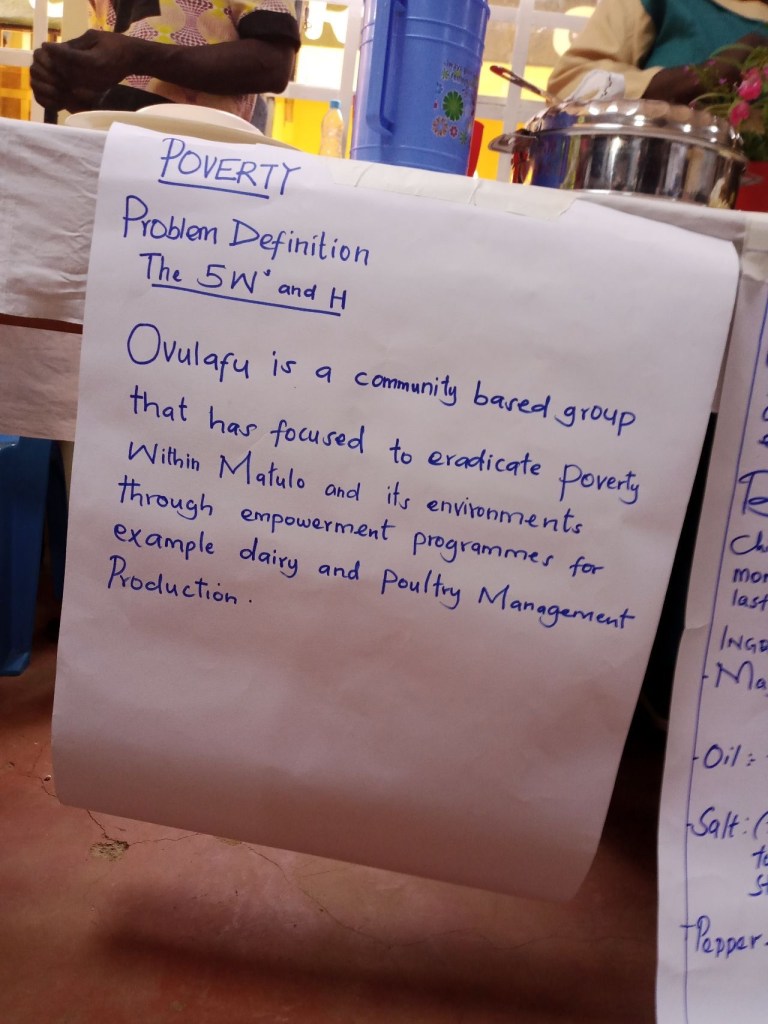 POVERTY
Problem Definition
The 5W's and H
Ovulafu is a community based group
that has focused to eradicate poverty
Within Matulo and its environments
through empowerment programmes for
example dairy and Poultry Management
Production.
last
- Oil:
- Salt: (
Pepper